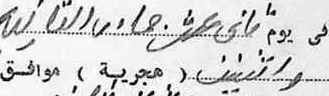 فى يوم ثانى عشر جماد الثانية
واثنين ( هجرية ) موافق